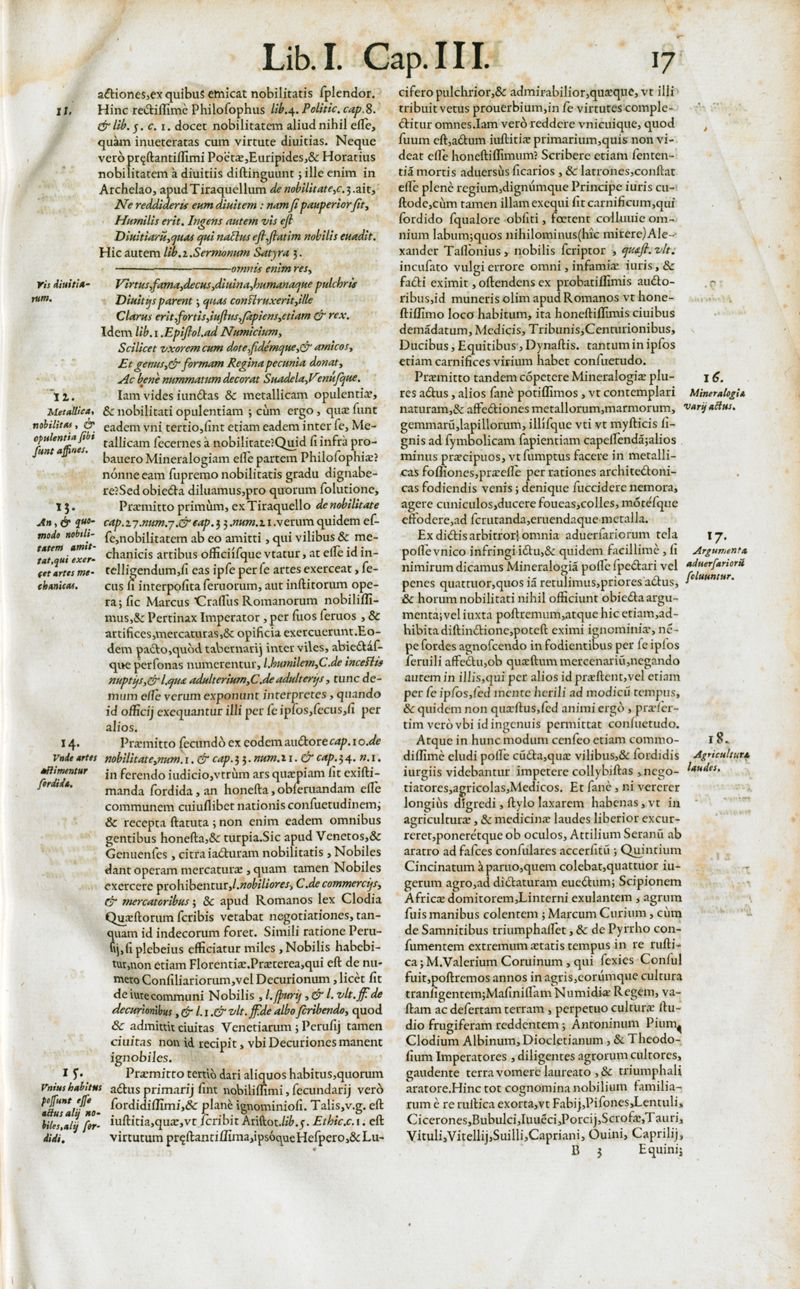 Lib. I. Cap. III. 17
actiones,ex quibus emicat nobilitatis ſplendor.
11.
Hinc rectiſſimè Philoſophus lib.4. Politic. cap.8.
& lib. 5. c. 1. docet nobilitatem aliud nihil eſſe,
quàm inueteratas cum virtute diuitias. Neque
verò pręſtantiſſimi Poëtæ,Euripides,& Horatius
nobilitatem à diuitiis diſtinguunt ; ille enim in
Archelao, apud Tiraquellum de nobilitate,c.3.ait,
Ne reddideris eum diuitem : nam ſi pauperior ſit,
Humilis erit. Ingens autem vis eſt
Diuitiarū,quas qui nactus eſt,ſtatim nobilis euadit.
Hic autem lib.2.Sermonum Satyra 3.
—omnis enim res,
Vis diuitia-
rum.
Virtus,fama,decus,diuina,humanaque pulchris
Diuitijs parent ; quas conſtruxerit,ille
Clarus erit,fortis,iuſtus,ſapiens,etiam & rex.
Idem lib.1.Epiſtol.ad Numicium,
Scilicet vxorem cum dote,fidémque,& amicos,
Et genus,& formam Regina pecunia donat,
Ac benè nummatum decorat Suadela,Venúſque.
12.
Metallica,
nobilitas, &
opulentia ſibi
ſunt affines.
Iam vides iunctas & metallicam opulentiæ,
& nobilitati opulentiam ; cùm ergo , quæ ſunt
eadem vni tertio,ſint etiam eadem inter ſe, Me-
tallicam ſecernes à nobilitate?Quid ſi infrà pro-
bauero Mineralogiam eſſe partem Philoſophiæ?
nónne eam ſupremo nobilitatis gradu dignabe-
re?Sed obiecta diluamus,pro quorum ſolutione,
13.
An, & quo-
modo nobili-
tatem amit-
tat,qui exer-
cet artes me-
chanicas.
Præmitto primùm, ex Tiraquello de nobilitate
cap.27.num.7.& cap.33.num.21.verum quidem eſ-
ſe,nobilitatem ab eo amitti , qui vilibus & me-
chanicis artibus officiíſque vtatur, at eſſe id in-
telligendum,ſi eas ipſe per ſe artes exerceat, ſe-
cus ſi interpoſita ſeruorum, aut inſtitorum ope-
ra; ſic Marcus Craſſus Romanorum nobiliſſi-
mus,& Pertinax Imperator , per ſuos ſeruos , &
artifices,mercaturas,& opificia exercuerunt.Eo-
dem pacto,quòd tabernarij inter viles, abiectáſ-
que perſonas numerentur, l.humilem,C.de inceſtis
nuptijs,& l.quæ adulterium,C.de adulterijs, tunc de-
mum eſſe verum exponunt interpretes , quando
id officij exequantur illi per ſe ipſos,ſecus,ſi per
alios.
14.
Vnde artes
æſtimentur
ſordidæ.
Præmitto ſecundò ex eodem auctore cap.10.de
nobilitate,num.1. & cap.33. num.21. & cap.34. n.1.
in ferendo iudicio,vtrùm ars quæpiam ſit exiſti-
manda ſordida , an honeſta,obſeruandam eſſe
communem cuiuſlibet nationis conſuetudinem;
& recepta ſtatuta ; non enim eadem omnibus
gentibus honeſta,& turpia.Sic apud Venetos,&
Genuenſes , citra iacturam nobilitatis , Nobiles
dant operam mercaturæ , quam tamen Nobiles
exercere prohibentur,l.nobiliores, C.de commercijs,
& mercatoribus ; & apud Romanos lex Clodia
Quæſtorum ſcribis vetabat negotiationes, tan-
quam id indecorum foret. Simili ratione Peru-
ſij,ſi plebeius efficiatur miles , Nobilis habebi-
tur,non etiam Florentiæ.Præterea,qui eſt de nu-
mero Conſiliariorum,vel Decurionum , licèt ſit
de iure communi Nobilis , l.ſpurij , & l. vlt.ff.de
decurionibus , & l.1.& vlt.ff.de albo ſcribendo, quod
& admittit ciuitas Venetiarum ; Peruſij tamen
ciuitas non id recipit , vbi Decuriones manent
ignobiles.
15.
Vnius habitus
poſſunt eſſe
actus alij no-
biles,alij ſor-
didi.
Præmitto tertiò dari aliquos habitus,quorum
actus primarij ſint nobiliſſimi, ſecundarij verò
ſordidiſſimi,& planè ignominioſi. Talis,v.g. eſt
iuſtitia,quæ,vt ſcribit Ariſtot.lib.5. Ethic.c.1. eſt
virtutum pręſtantiſſima,ipsóque Heſpero,& Lu-
cifero pulchrior,& admirabilior,quæque, vt illi
tribuit vetus prouerbium,in ſe virtutes comple-
ctitur omnes.Iam verò reddere vnicuique, quod
ſuum eſt,actum iuſtitiæ primarium,quis non vi-
deat eſſe honeſtiſſimum? Scribere etiam ſenten-
tiā mortis aduersùs ſicarios , & latrones,conſtat
eſſe plenè regium,dignúmque Principe iuris cu-
ſtode,cùm tamen illam exequi ſit carnificum,qui
ſordido ſqualore obſiti , fœtent colluuie om-
nium labum;quos nihilominus(hîc mitere)Ale-
xander Taſſonius , nobilis ſcriptor , quæſt. vlt.
incuſato vulgi errore omni , infamiæ iuris , &
facti eximit , oſtendens ex probatiſſimis aucto-
ribus,id muneris olim apud Romanos vt hone-
ſtiſſimo loco habitum, ita honeſtiſſimis ciuibus
demādatum, Medicis, Tribunis,Centurionibus,
Ducibus , Equitibus , Dynaſtis. tantum in ipſos
etiam carnifices virium habet conſuetudo.
16.
Mineralogiæ
varij actus.
Præmitto tandem cōpetere Mineralogiæ plu-
res actus , alios ſanè potiſſimos , vt contemplari
naturam,& affectiones metallorum,marmorum,
gemmarū,lapillorum, illiſque vti vt myſticis ſi-
gnis ad ſymbolicam ſapientiam capeſſendā;alios
minus præcipuos, vt ſumptus facere in metalli-
cas foſſiones,præeſſe per rationes architectoni-
cas fodiendis venis ; denique ſuccidere nemora,
agere cuniculos,ducere foueas,colles, mōtéſque
effodere,ad ſcrutanda,eruendaque metalla.
17.
Argumenta
aduerſariorū
ſoluuntur.
Ex dictis arbitror omnia aduerſariorum tela
poſſe vnico infringi ictu,& quidem facillimè , ſi
nimirum dicamus Mineralogiā poſſe ſpectari vel
penes quatruor,quos iā retulimus,priores actus,
& horum nobilitati nihil officiunt obiecta argu-
menta;vel iuxta poſtremum,atque hîc etiam,ad-
hibita diſtinctione,poteſt eximi ignominiæ, nē-
pe ſordes agnoſcendo in fodientibus per ſe ipſos
ſeruili affectu,ob quæſtum mercenariū,negando
autem in illis,qui per alios id præſtent,vel etiam
per ſe ipſos,ſed mente herili ad modicū tempus,
& quidem non quæſtus,ſed animi ergò , præſer-
tim verò vbi id ingenuis permittat conſuetudo.
18.
Agriculturæ
laudes.
Atque in hunc modum cenſeo etiam commo-
diſſimè eludi poſſe cūcta,quæ vilibus,& ſordidis
iurgiis videbantur impetere collybiſtas , nego-
tiatores,agricolas,Medicos. Et ſanè , ni vererer
longiùs digredi , ſtylo laxarem habenas , vt in
agriculturæ , & medicinæ laudes liberior excur-
reret,poneretque ob oculos, Attilium Seranū ab
aratro ad faſces conſulares accerſitū ; Quintium
Cincinatum à paruo,quem colebat,quattuor iu-
gerum agro,ad dictaturam euectum; Scipionem
Africæ domitorem,Linterni exulantem , agrum
ſuis manibus colentem ; Marcum Curium , cùm
de Samnitibus triumphaſſet, & de Pyrrho con-
ſumentem extremum ætatis tempus in re ruſti-
ca ; M.Valerium Coruinum , qui ſexies Conſul
fuit,poſtremos annos in agris,eorúmque cultura
tranſigentem;Maſiniſſam Numidiæ Regem, va-
ſtam ac deſertam terram , perpetuo culturæ ſtu-
dio frugiferam reddentem ; Antoninum Pium,
Clodium Albinum, Diocletianum , & Theodo-
ſium Imperatores , diligentes agrorum cultores,
gaudente terra vomere laureato , & triumphali
aratore.Hinc tot cognomina nobilium familia-
rum è re ruſtica exorta,vt Fabij,Piſones,Lentuli,
Cicerones,Bubulci,Iuuēci,Porcij,Scrofæ,Tauri,
Vituli,Vitellij,Suilli,Capriani, Ouini, Caprilij,
B 3 Equini;